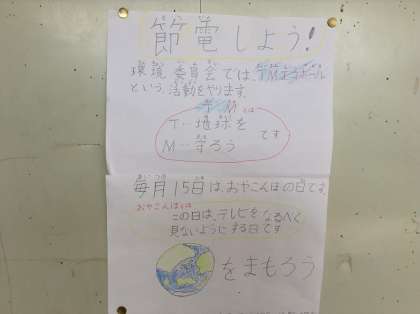 節電しよう!
環境委員会では、TM守ろボール
という活動をやります。
TMとは
T…地球を
M…守ろう
です
毎月15日はおやこんぼの日です。
おやこんぼとは
この日は、テレビをなるべく
見ないようにする日です
をまもろう